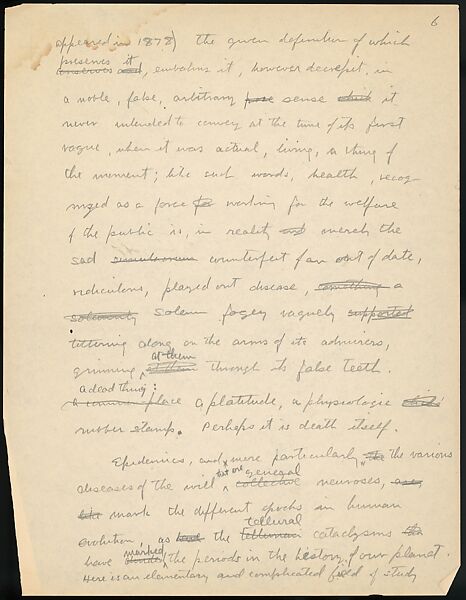 6
appeared in 1878) the given definition of which
preserves it
conserves and, embalms it, however decrepit, in
a noble, false, arbitrary sense which it
never intended to convey at the time of its first
vogue, when it was actual, living, a thing of
the moment; like such words, health, recog-
nized as a force for working for the welfare
of the public is, in reality and merely the
sad counterfeit of an out of date,
ridiculous, played out disease, something a
solemnity solemn fogey vaguely supported
tittering along on the arms of its admirers,
at them
grinning, at them through its false teeth.
a dead thing:
a common place a platitude, a physiologic
rubber stamp. Perhaps it is death itself.
Epidemics, and more particularly, the the various
that are general
diseases of the will collective neuroses,
mark the different epochs in human
tellural
evolution, as had the cataclysms
marked
have the periods in the history of our planet.
Here is an elementary and complicated field of study